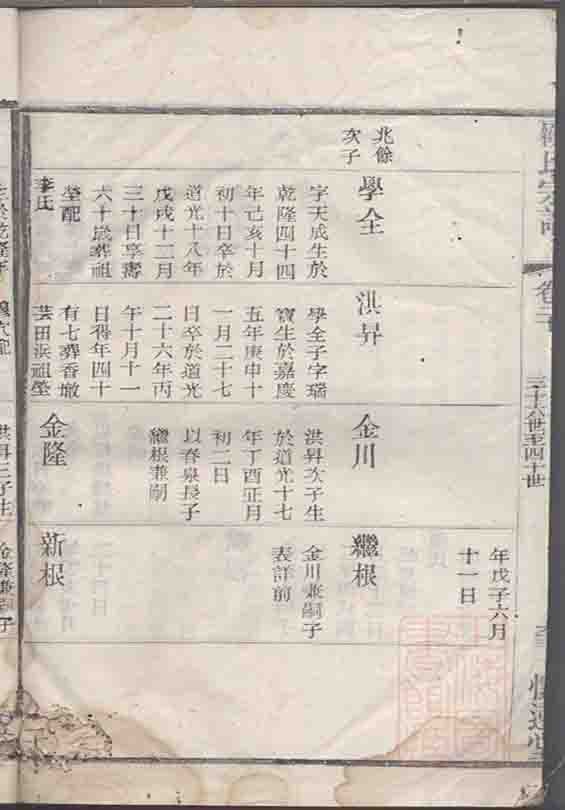 氏宗譜
卷二
三十六世至四十世
兆餘
次子
學全
字天成生於
乾隆四十四
年己亥十月
初十日卒於
道光十八年
戊戌十二月
三十日享壽
六十歲葬祖
塋配
李氏
洪昇
學全子字瑞
寶生於嘉慶
五年庚申十
一月二十七
日卒於道光
二十六年丙
午十月十一
日得年四十
有七葬香墩
芸田浜祖塋
金川
洪昇次子生
於道光十七
年丁酉正月
初二日
以春泉長子
繼根兼嗣
金隆
年戊子六月
十一日
繼根
金川兼嗣子
表詳前
新根